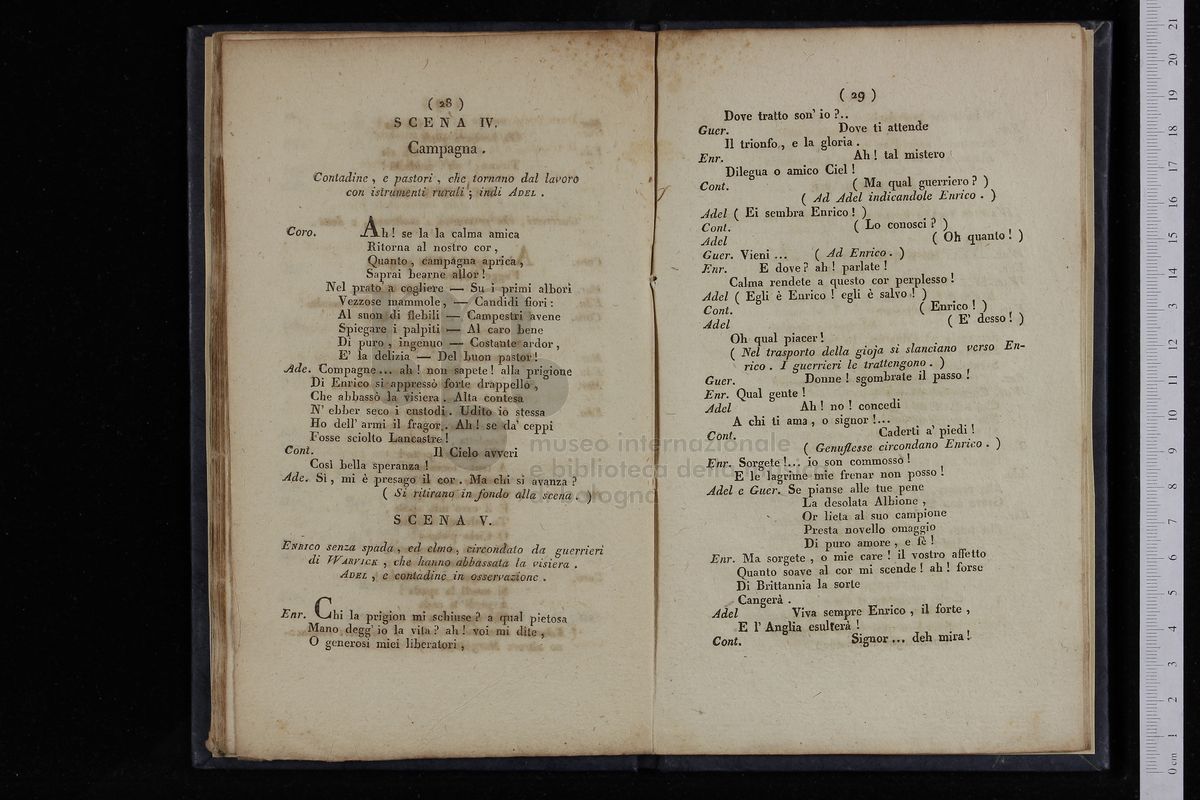 ( 28 )
SCENA IV.
Campagna .
Contadine , e pastori , che tornano dal lavoro
con istrumenti rurali ; indi ADEL .
Coro. Ah ! se la la calma amica
Ritorna al nostro cor ,
Quanto , campagna aprica ,
Saprai bearne allor !
Nel prato a cogliere — Su i primi albori
Vezzose mammole , — Candidi fiori :
Al suon di flebili — Campestri avene
Spiegare i palpiti — Al caro bene
Di puro , ingenuo — Costante ardor ,
E' la delizia — Del buon pastor !
Ade. Compagne ... ah ! non sapete ! alla prigione
Di Enrico si appressò forte drappello ,
Che abbassò la visiera . Alta contesa
N' ebber seco i custodi . Udito io stessa
Ho dell' armi il fragor . Ah ! se da' ceppi
Fosse sciolto Lancastre !
Cont. Il Cielo avveri
Così bella speranza !
Ade. Sì , mi è presago il cor . Ma chi si avanza ?
( Si ritirano in fondo alla scena . )
SCENA V.
ENRICO senza spada , ed elmo , circondato da guerrieri
di WARVICK , che hanno abbassata la visiera .
ADEL , e contadine in osservazione .
Enr. Chi la prigion mi schiuse ? a qual pietosa
Mano degg' io la vita ? ah ! voi mi dite ,
O generosi miei liberatori ,
( 29 )
Dove tratto son' io ?..
Guer. Dove ti attende
Il trionfo , e la gloria .
Enr. Ah ! tal mistero
Dilegua o amico Ciel !
Cont. ( Ma qual guerriero ? )
( Ad Adel indicandole Enrico . )
Adel ( Ei sembra Enrico ! )
Cont. ( Lo conosci ? )
Adel ( Oh quanto ! )
Guer. Vieni ... ( Ad Enrico . )
Enr. E dove ? ah ! parlate !
Calma rendete a questo cor perplesso !
Adel ( Egli è Enrico ! egli è salvo ! )
Cont. ( Enrico ! )
Adel ( E' desso ! )
Oh qual piacer !
( Nel trasporto della gioja si slanciano verso En-
rico . I guerrieri le trattengono . )
Guer. Donne ! sgombrate il passo !
Enr. Qual gente !
Adel Ah ! no ! concedi
A chi ti ama , o signor !...
Cont. Caderti a' piedi !
( Genuflesse circondano Enrico . )
Enr. Sorgete !... io son commosso !
E le lagrime mie frenar non posso !
Adel e Guer. Se pianse alle tue pene
La desolata Albione ,
Or lieta al suo campione
Presta novello omaggio
Di puro amore , e fè !
Enr. Ma sorgete , o mie care ! il vostro affetto
Quanto soave al cor mi scende ! ah ! forse
Di Brittannia la sorte
Cangerà .
Adel Viva sempre Enrico , il forte ,
E l' Anglia esulterà !
Cont. Signor ... deh mira !
museo internazionale
e biblioteca della
ologna
0 cm 1 2 3 4 5 6 7 8 9 10 11 12 13 14 15 16 17 18 19 20 21